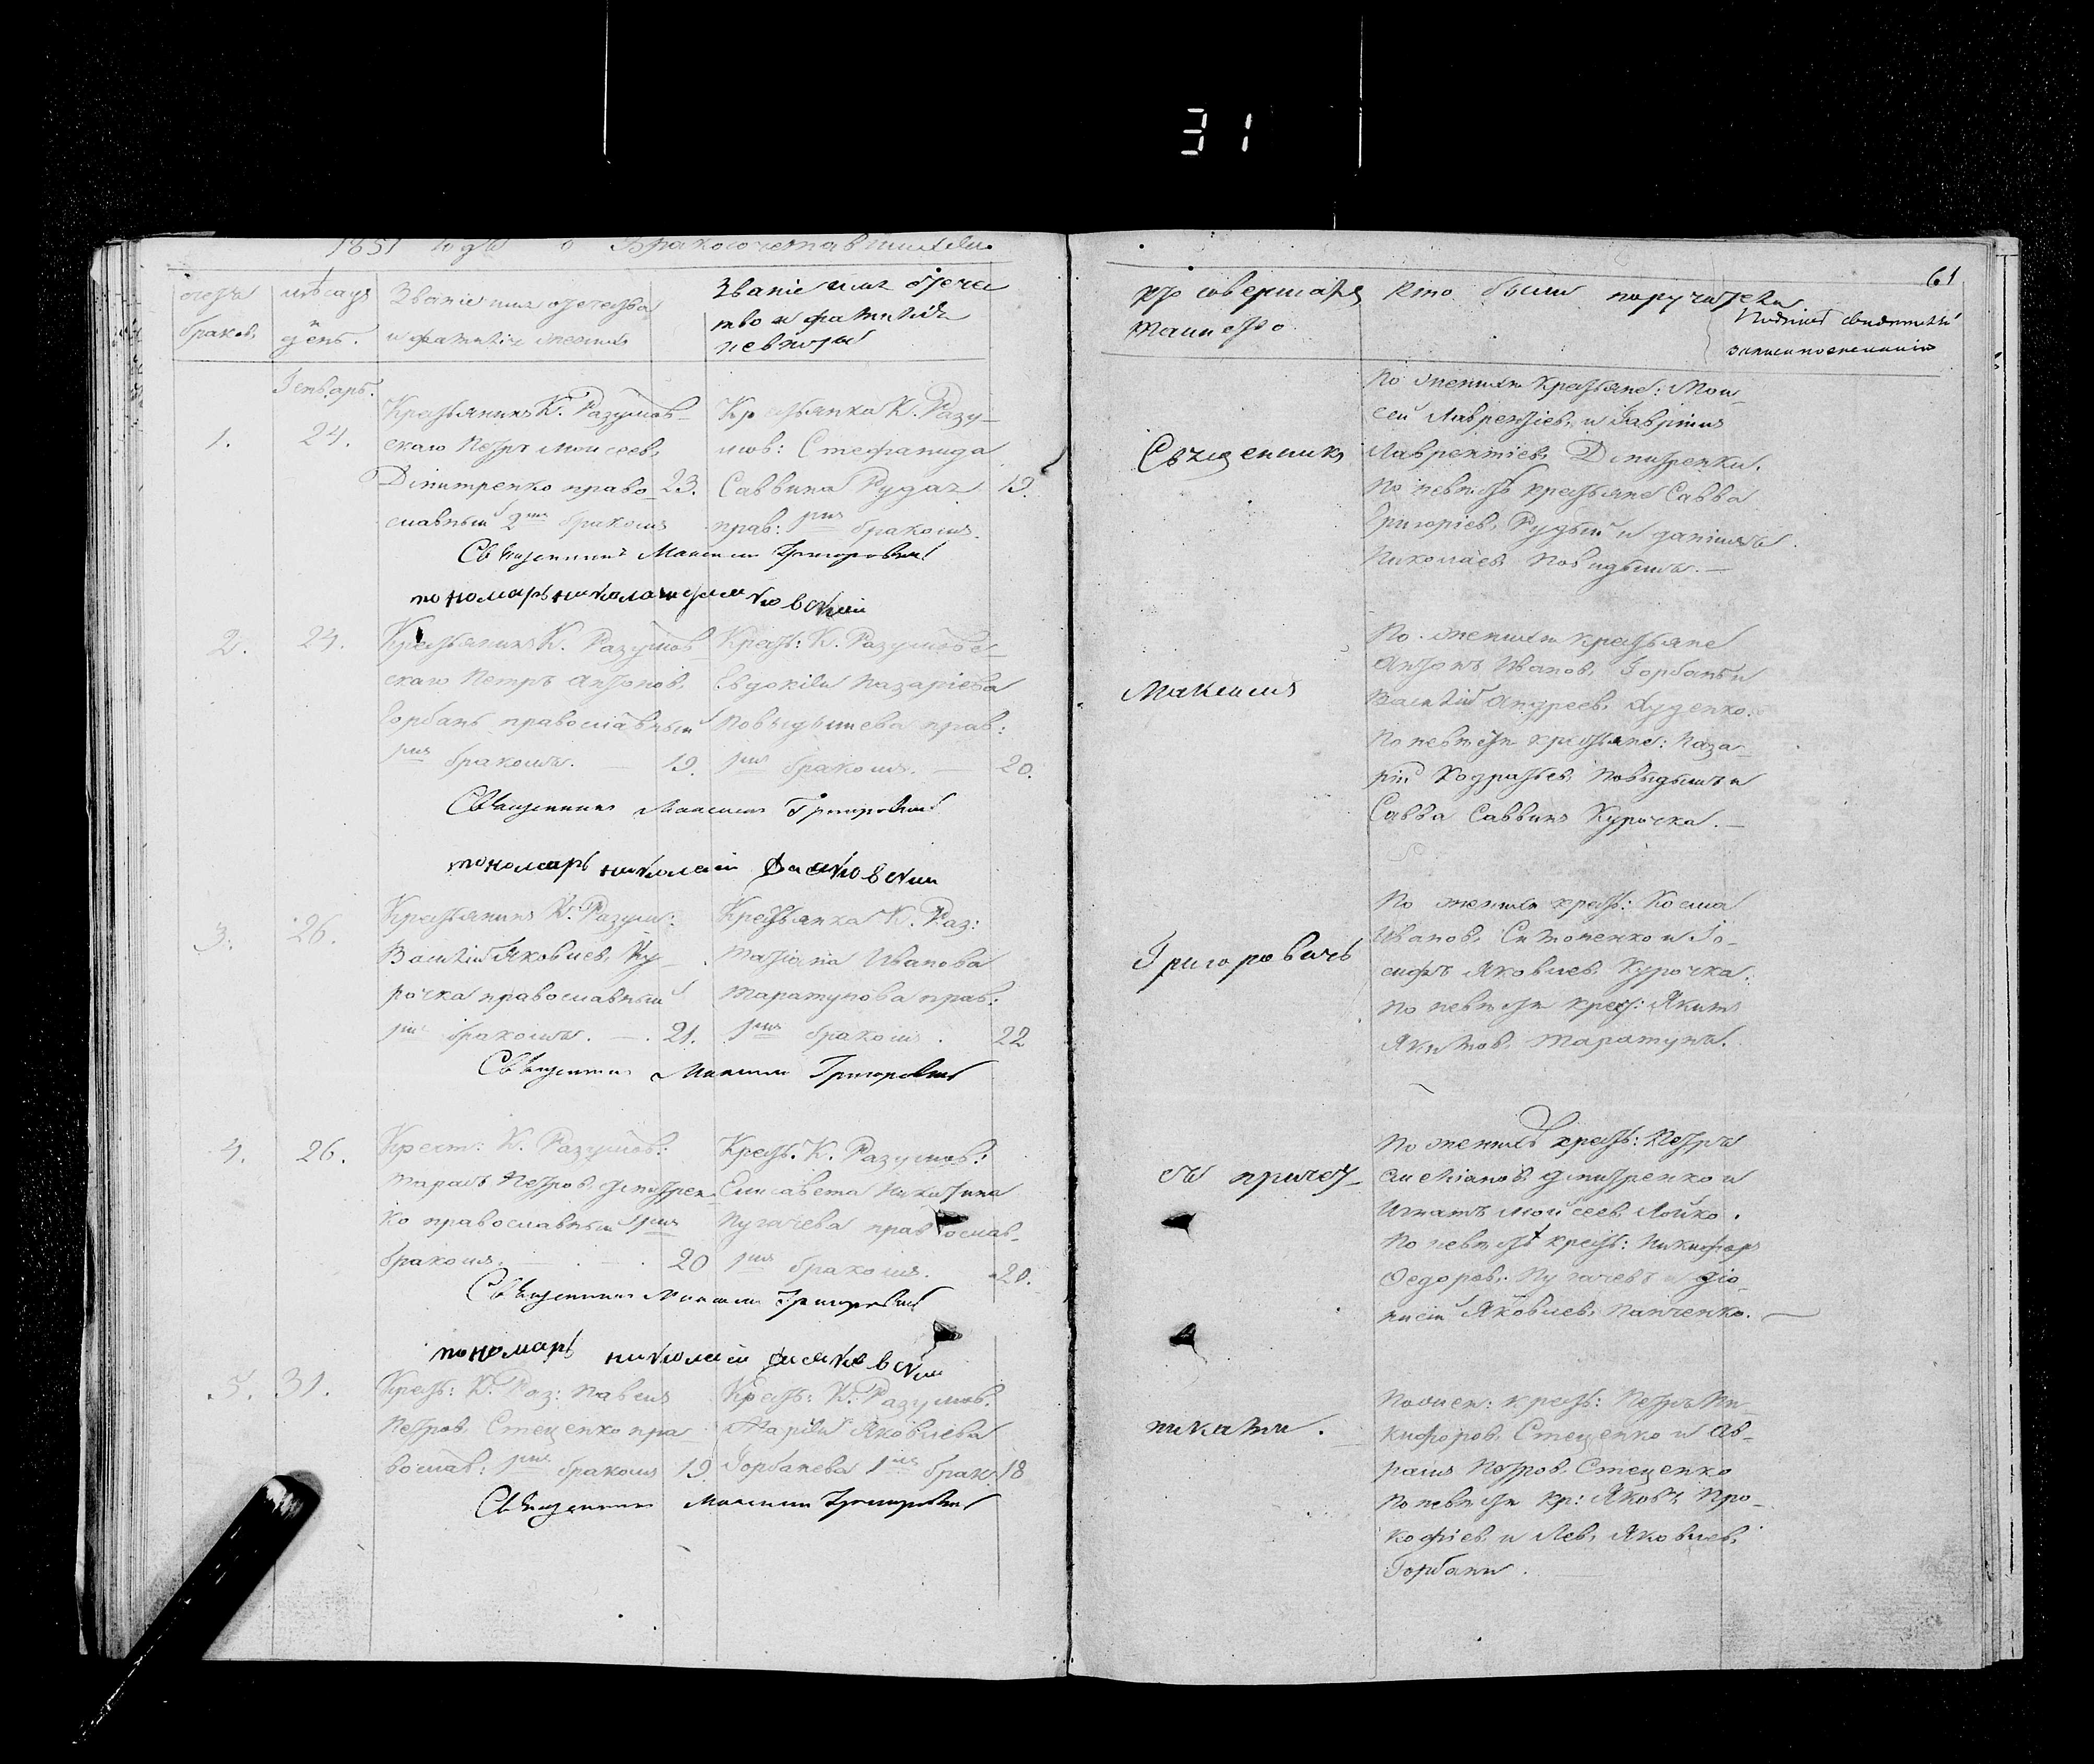 31
1851 года о Бракосочетавшихся
счетъ браков
мѣсяцъ и день.
Званіе имя отечества
и фамилія жениха
Званіе имя отече
тво и фамилія
невѣсты
Генварь.
1.
24.
Крестьянинъ К. Разумов-
скаго Петръ Моисеев,
Дмитренко право-
славный 2мъ бракомъ
23.
Крестьянка К. Разу-
мов: Стефанида
Саввина Рудая
прав: 1мъ бракомъ.
19.
Священникъ Максимъ Григоровичъ
пономарь николай
2.
24.
Крестьянинъ К. Разумов
скаго Петръ Антонов,
Горбань православный
1мъ бракомъ. — 19.
Крест: К. Разумовс-
Евдокія Назаріева
Повидышева прав:
1мъ бракомъ. — 20.
Священникъ Максимъ Григоровичъ
пономарь николай
3.
26.
Крестьянинъ К. Разум:
Василій Яковлев, Ку-
рочка православный
1мъ бракомъ. — 21.
Крестьянка К. Раз:
Татіана Иванова
Таратунова прав:
1мъ бракомъ. 22
Священникъ Максимъ Григоровичъ
4.
26.
Крест: К. Разумов:
Тарасъ Петров, Дмитрен-
ко православный 1мъ
бракомъ. 20
Крест. К. Разумов:
Елисавета Никитина
Пугачева православ-
1мъ бракомъ. 20.
Священникъ Максимъ Григоровичъ
пономарь николай
5.
31.
Крест: К. Раз: Павелъ
Петров, Стеценко пра
вослав: 1мъ бракомъ 19.
Крест: К. Разумов.
Марія Яковлева
Горбанева 1мъ брак. 18
Священникъ Максимъ Григоровичъ
61
кто совершалъ
таинство
кто были поручители
Подписъ свидетелей
записи по желанію
Священникъ
Максимъ
Григоровичъ
съ причет-
никами.
По женихѣ крестьяне: Мои-
сей Лаврентіев, и Гавріилъ
Лаврентіев, Дмитренки.
По невѣстѣ крестьяне Савва
Григоріев, Рудый и Даніилъ
Николаев, Повидышъ. —
По женихѣ крестьяне
Антонъ Иванов, Горбань и
Василій Андреев,
По невѣстѣ крестьяне: Наза-
рій Кодратьев, Повидышъ и
Савва Саввинъ Курочка. —
По женихѣ крест: Косма
Иванов, Симоненко и Іо-
сифъ Яковлев, Курочка.
По невѣстѣ крест: Якимъ
Якимов, Таратунъ.
По женихѣ крест: Петръ
дмитренко и
Игнатъ Мойсеев, Лойко.
По невѣстѣ крест: Никифоръ
Федоров, Пугачевъ и Діо-
нисій Яковлев, Панченко. —
По жен: крест: Петръ Ни-
кифоров, Стеценко и Ав-
рамъ Петров, Стеценко
По невѣстѣ кр: Яковъ Про-
кофіев, и Лев, Яковлев,
Горбани.